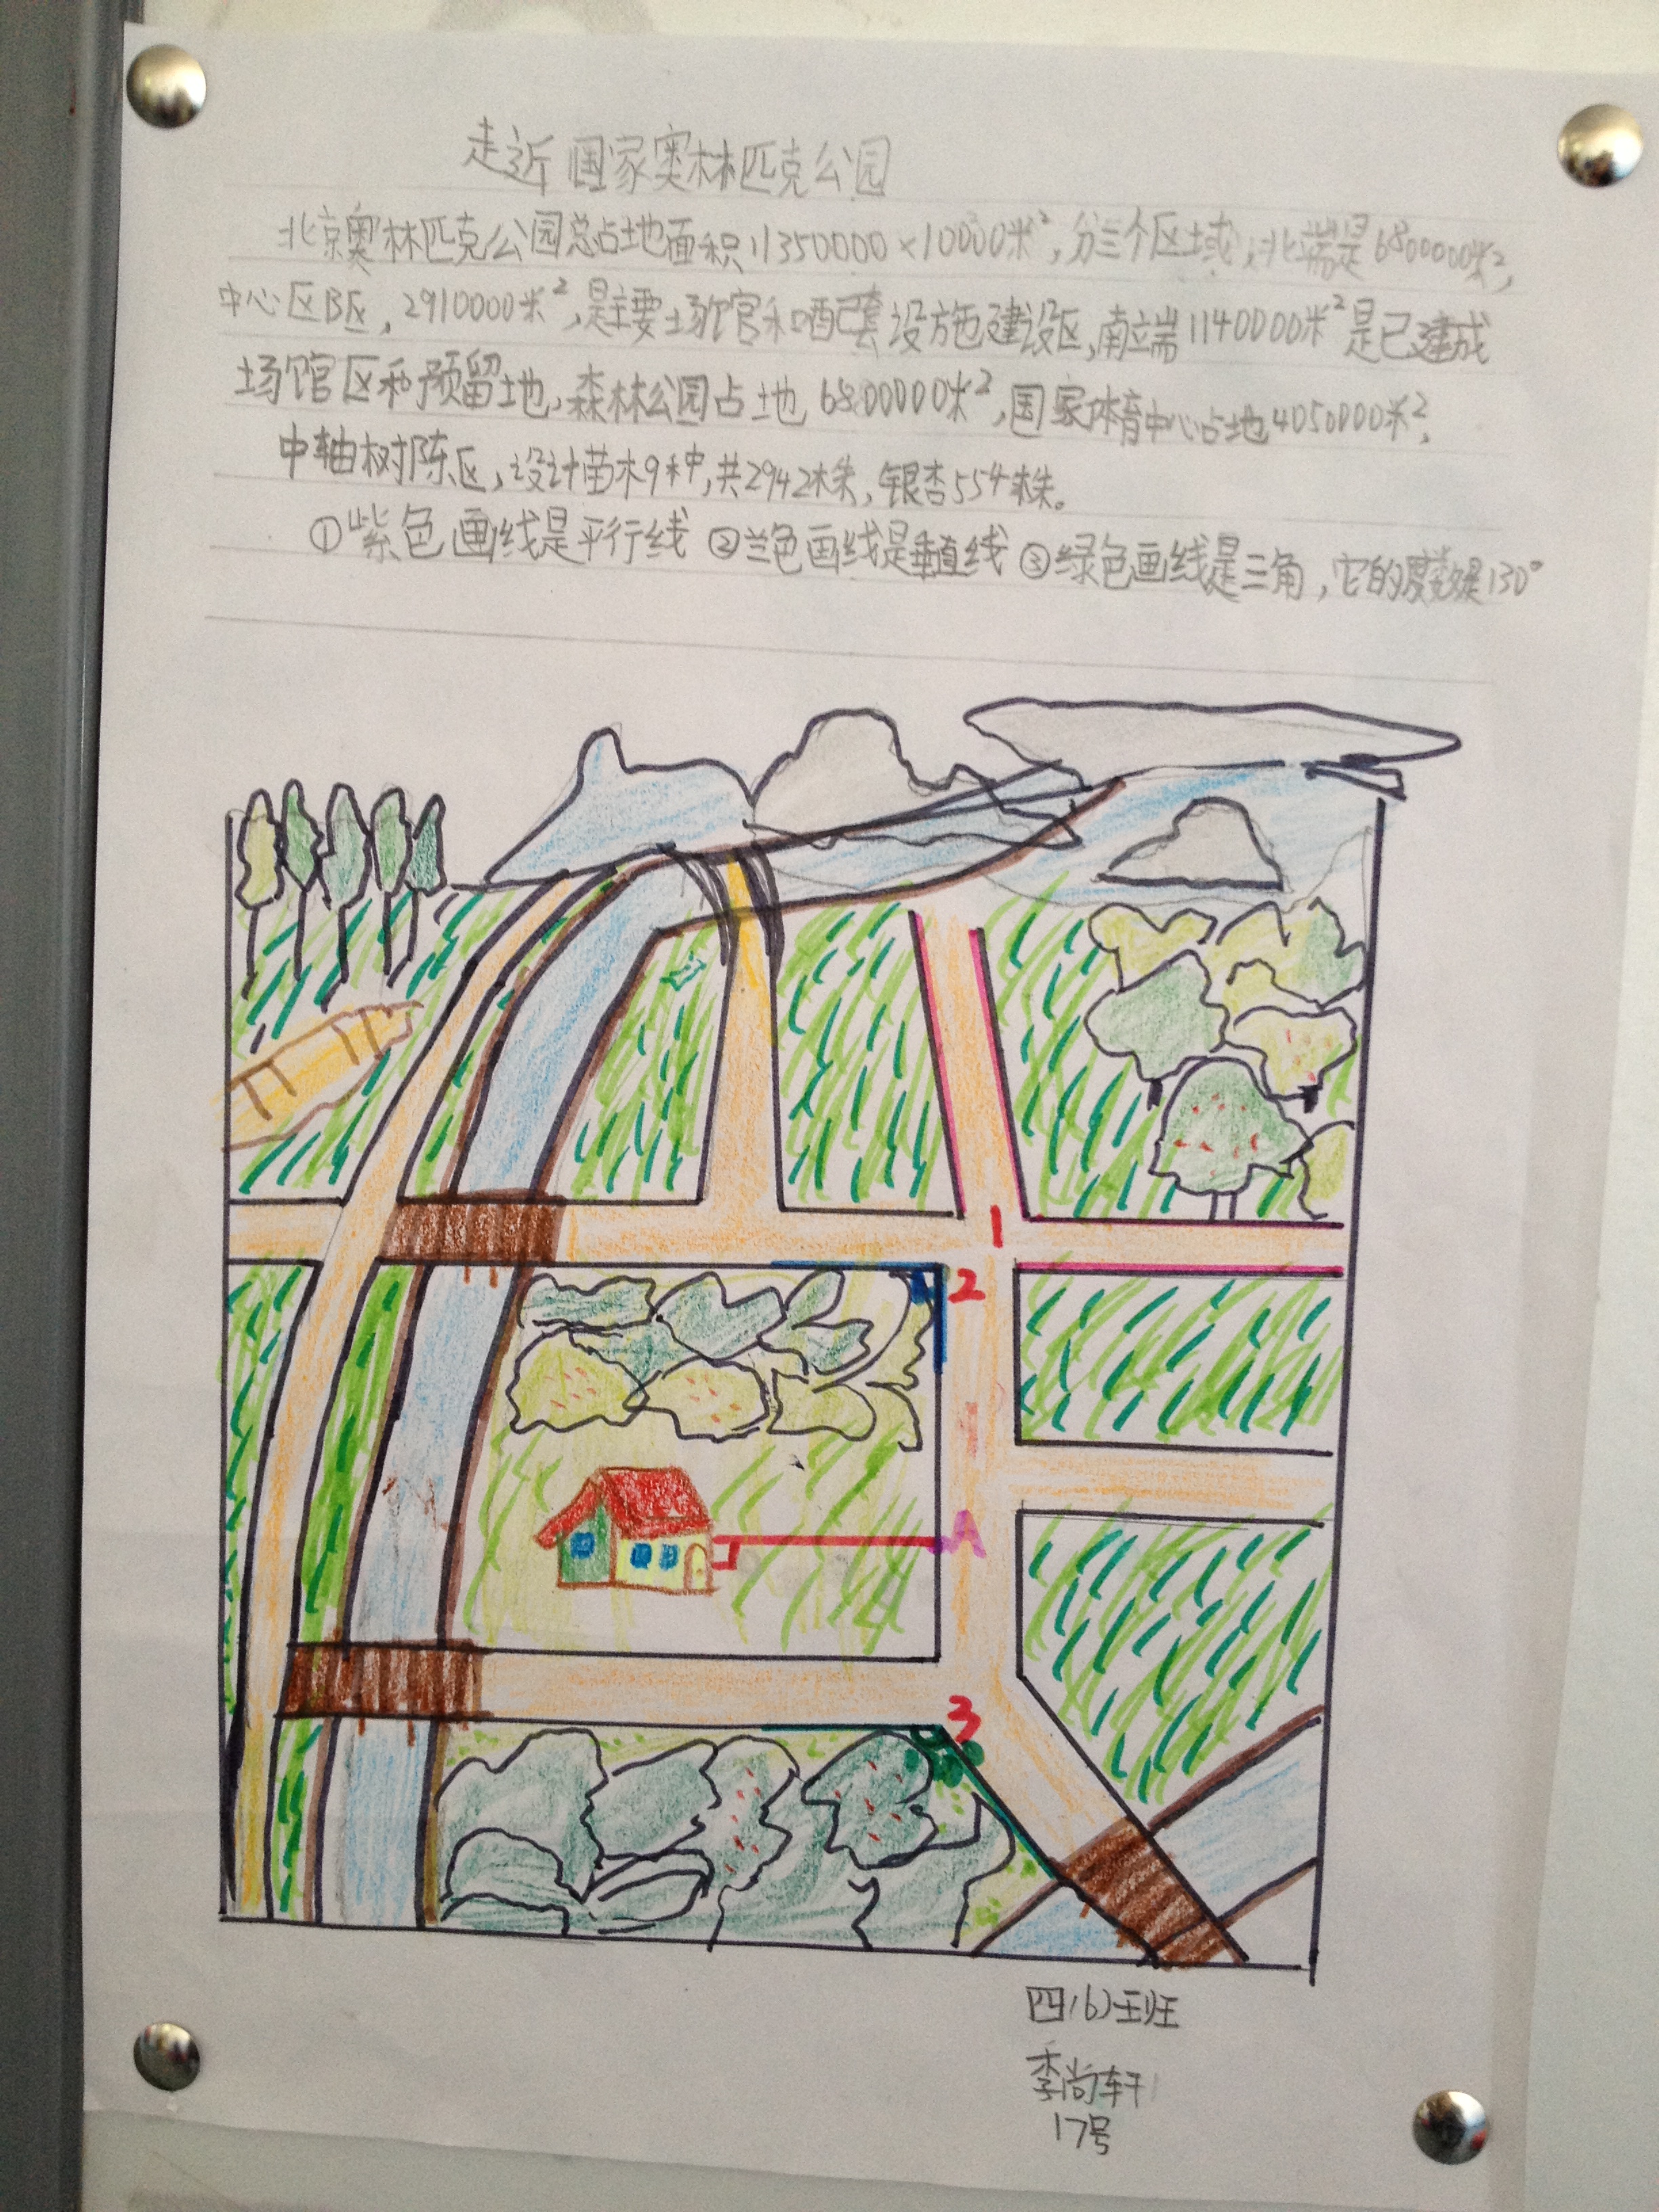 走近国家奥林匹克公园
北京奥林匹克公园总占地面积11350000×10000米²,分三个区域,北端是6800000米²,
中心区B区,2910000米²,是主要场馆和配套设施建设区,南端1140000米²是已建成
场馆区和预留地,森林公园占地6800000米²,国家体育中心占地4050000米²,
中轴树阵区,设计苗木9种,共2942株,银杏554株。
①紫色画线是平行线 ②兰色画线是垂直线 ③绿色画线是三角,它的度数是130°
1
2
A
3
四(6)班
季尚轩
17号